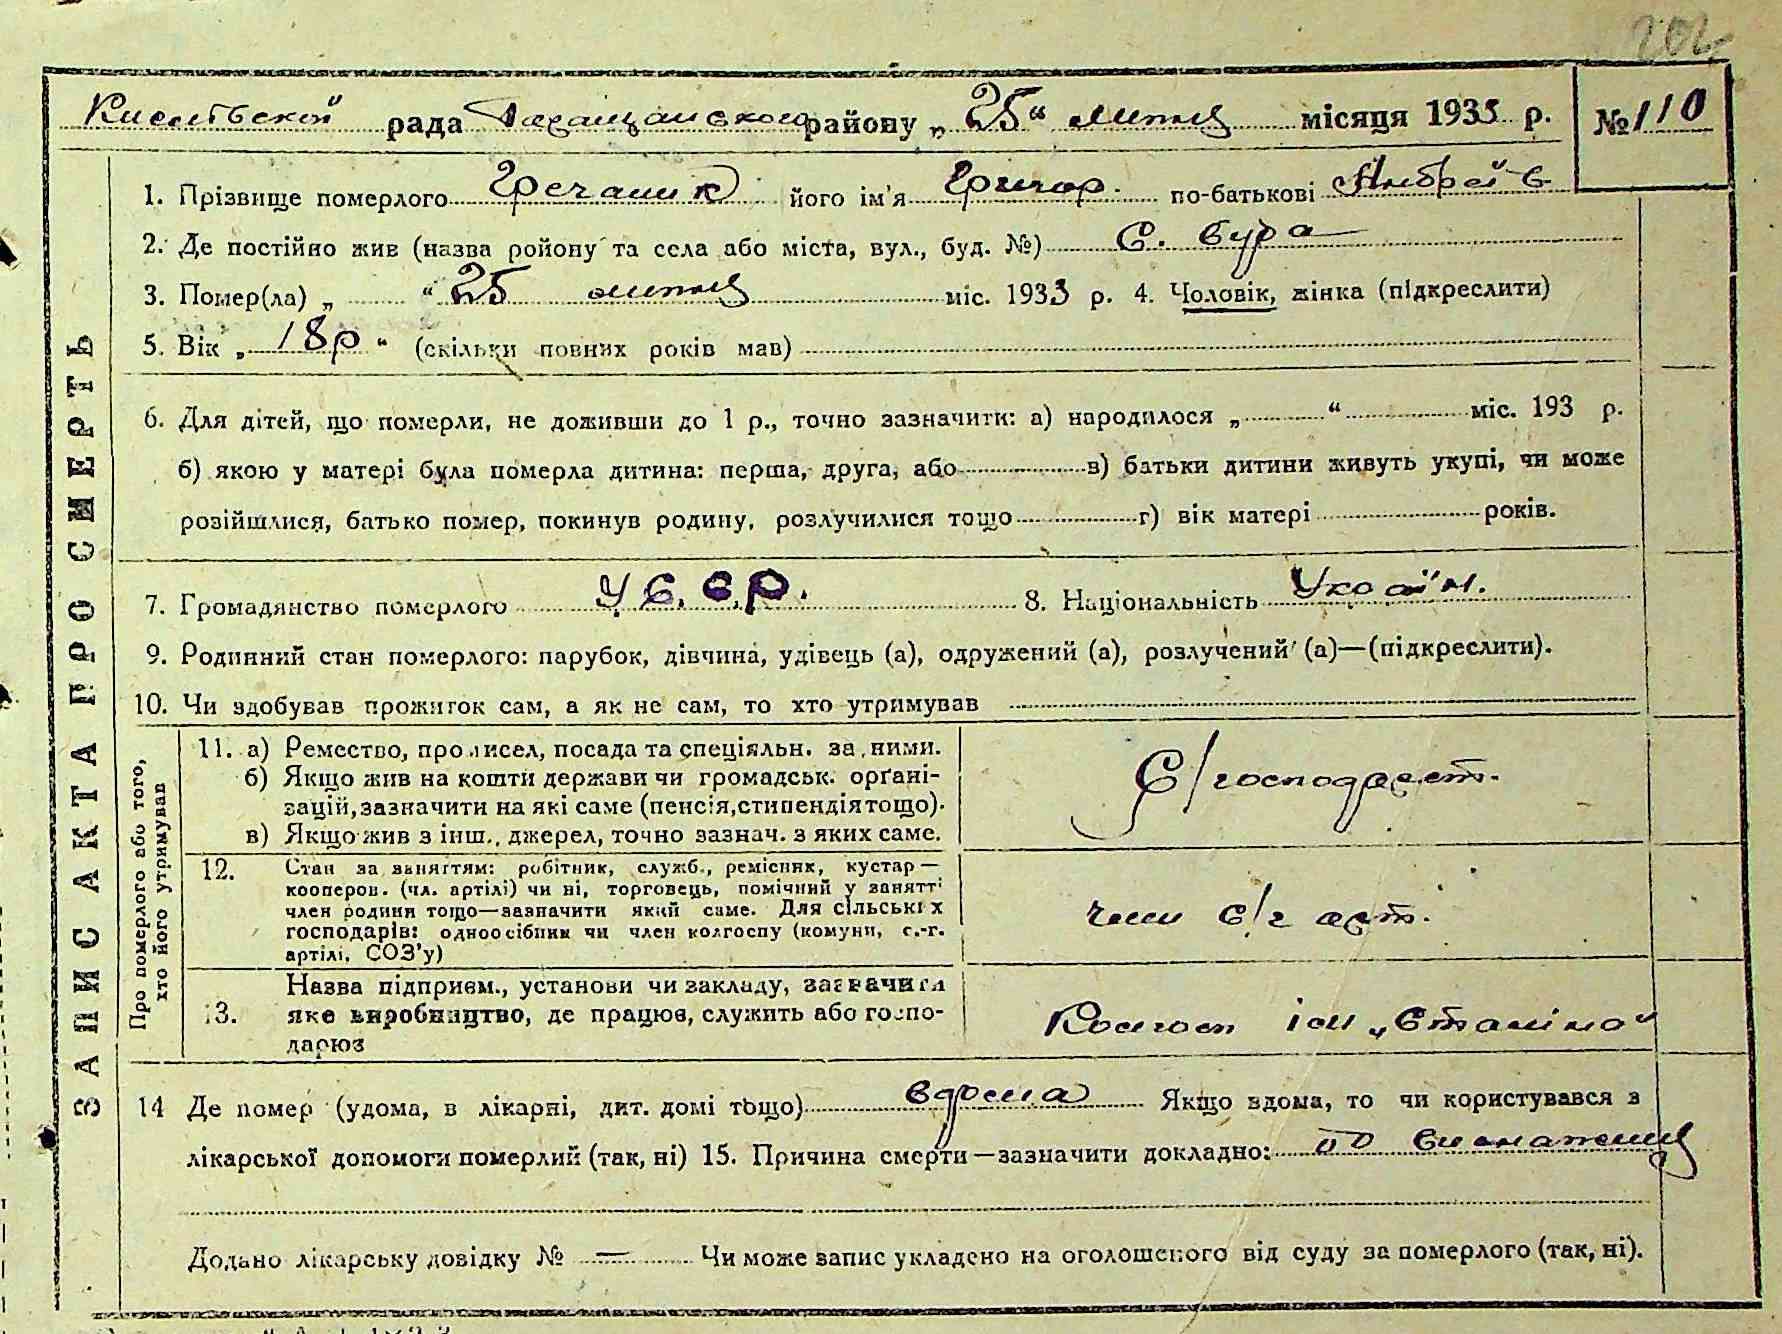 202
рада Таращанського району „ 25 “ липня місяця 1933 р. №110
1. Прізвище померлого Гречаник його ім'я Григор. по-батькові Андрейов
2. Де постійно жив (назва ройону та села або міста, вул., буд. №) С. Бура
3. Помер(ла) „ “ 25 липня міс. 1933 р. 4. Чоловік, жінка (підкреслити)
5. Вік „ 18р “ (скільки повних років мав)
6. Для дітей, що померли, не доживши до 1 р., точно зазначити: а) народилося „ “ міс. 193 р.
б) якою у матері була померла дитина: перша, друга, або в) батьки дитини живуть укупі, чи може
розійшлися, батько помер, покинув родину, розлучилися тощо г) вік матері років.
7. Громадянство померлого У.С.С.Р. 8. Національність Україн.
9. Родинний стан померлого: парубок, дівчина, удівець (а), одружений (а), розлучений (а)—(підкреслити).
10. Чи здобував прожиток сам, а як не сам, то хто утримував
Про померлого або того, хто його утримував
11. а) Ремество, промисел, посада та спеціяльн. за ними.
б) Якщо жив на кошти держави чи громадськ. орґані-
зацій, зазначити на які саме (пенсія, стипендія тощо).
в) Якщо жив з інш., джерел, точно зазнач. з яких саме.
С/господарст.
12. Стан за заняттям: робітник, служб., ремісник, кустар—
кооперов. (чл. артілі) чи ні, торговець, помічний у занятті
член родини тощо—зазначити який саме. Для сільських
господарів: одноосібник чи член колгоспу (комуни, с.-г.
артілі, СОЗ'у)
член с/г арт.
13. Назва підприєм., установи чи закладу, зазначити
яке виробництво, де працює, служить або госпо-
дарює
Колгосп ім „Сталіна“
14 Де помер (удома, в лікарні, дит. домі тощо) вдома Якщо вдома, то чи користувався з
лікарської допомоги померлий (так, ні) 15. Причина смерти—зазначити докладно: од виснаження
Додано лікарську довідку № — Чи може запис укладено на оголошеного від суду за померлого (так, ні).
ЗАПИСКА ПРО СМЕРТЬ